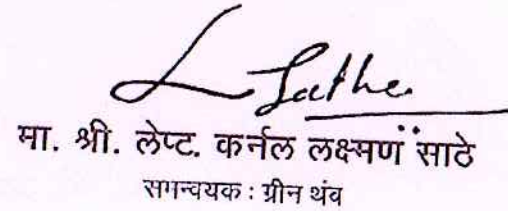 L Sathe
मा. श्री. लेप्ट. कर्नल लक्ष्मण साठे
समन्वयक : ग्रीन थंब